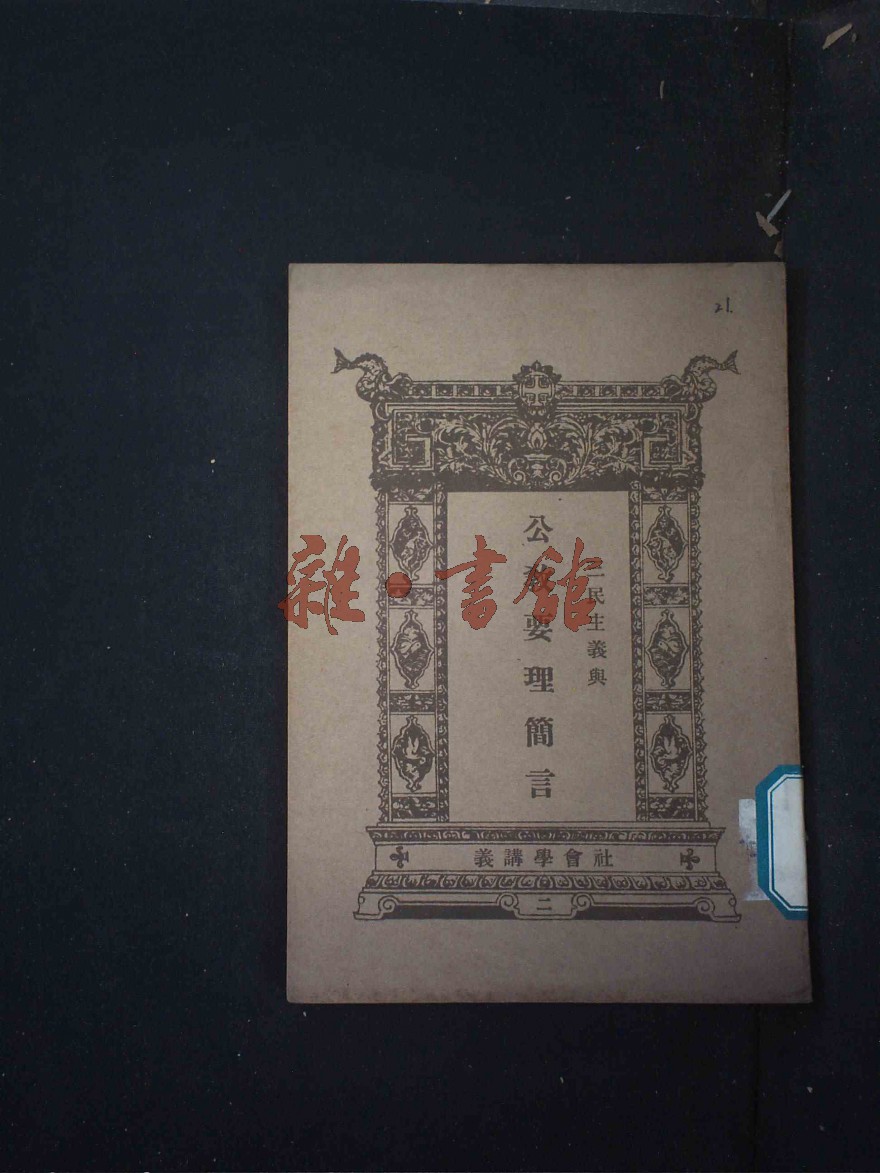 21.
三民主義與
公教要理簡言
社會學講義
二
雜·書館